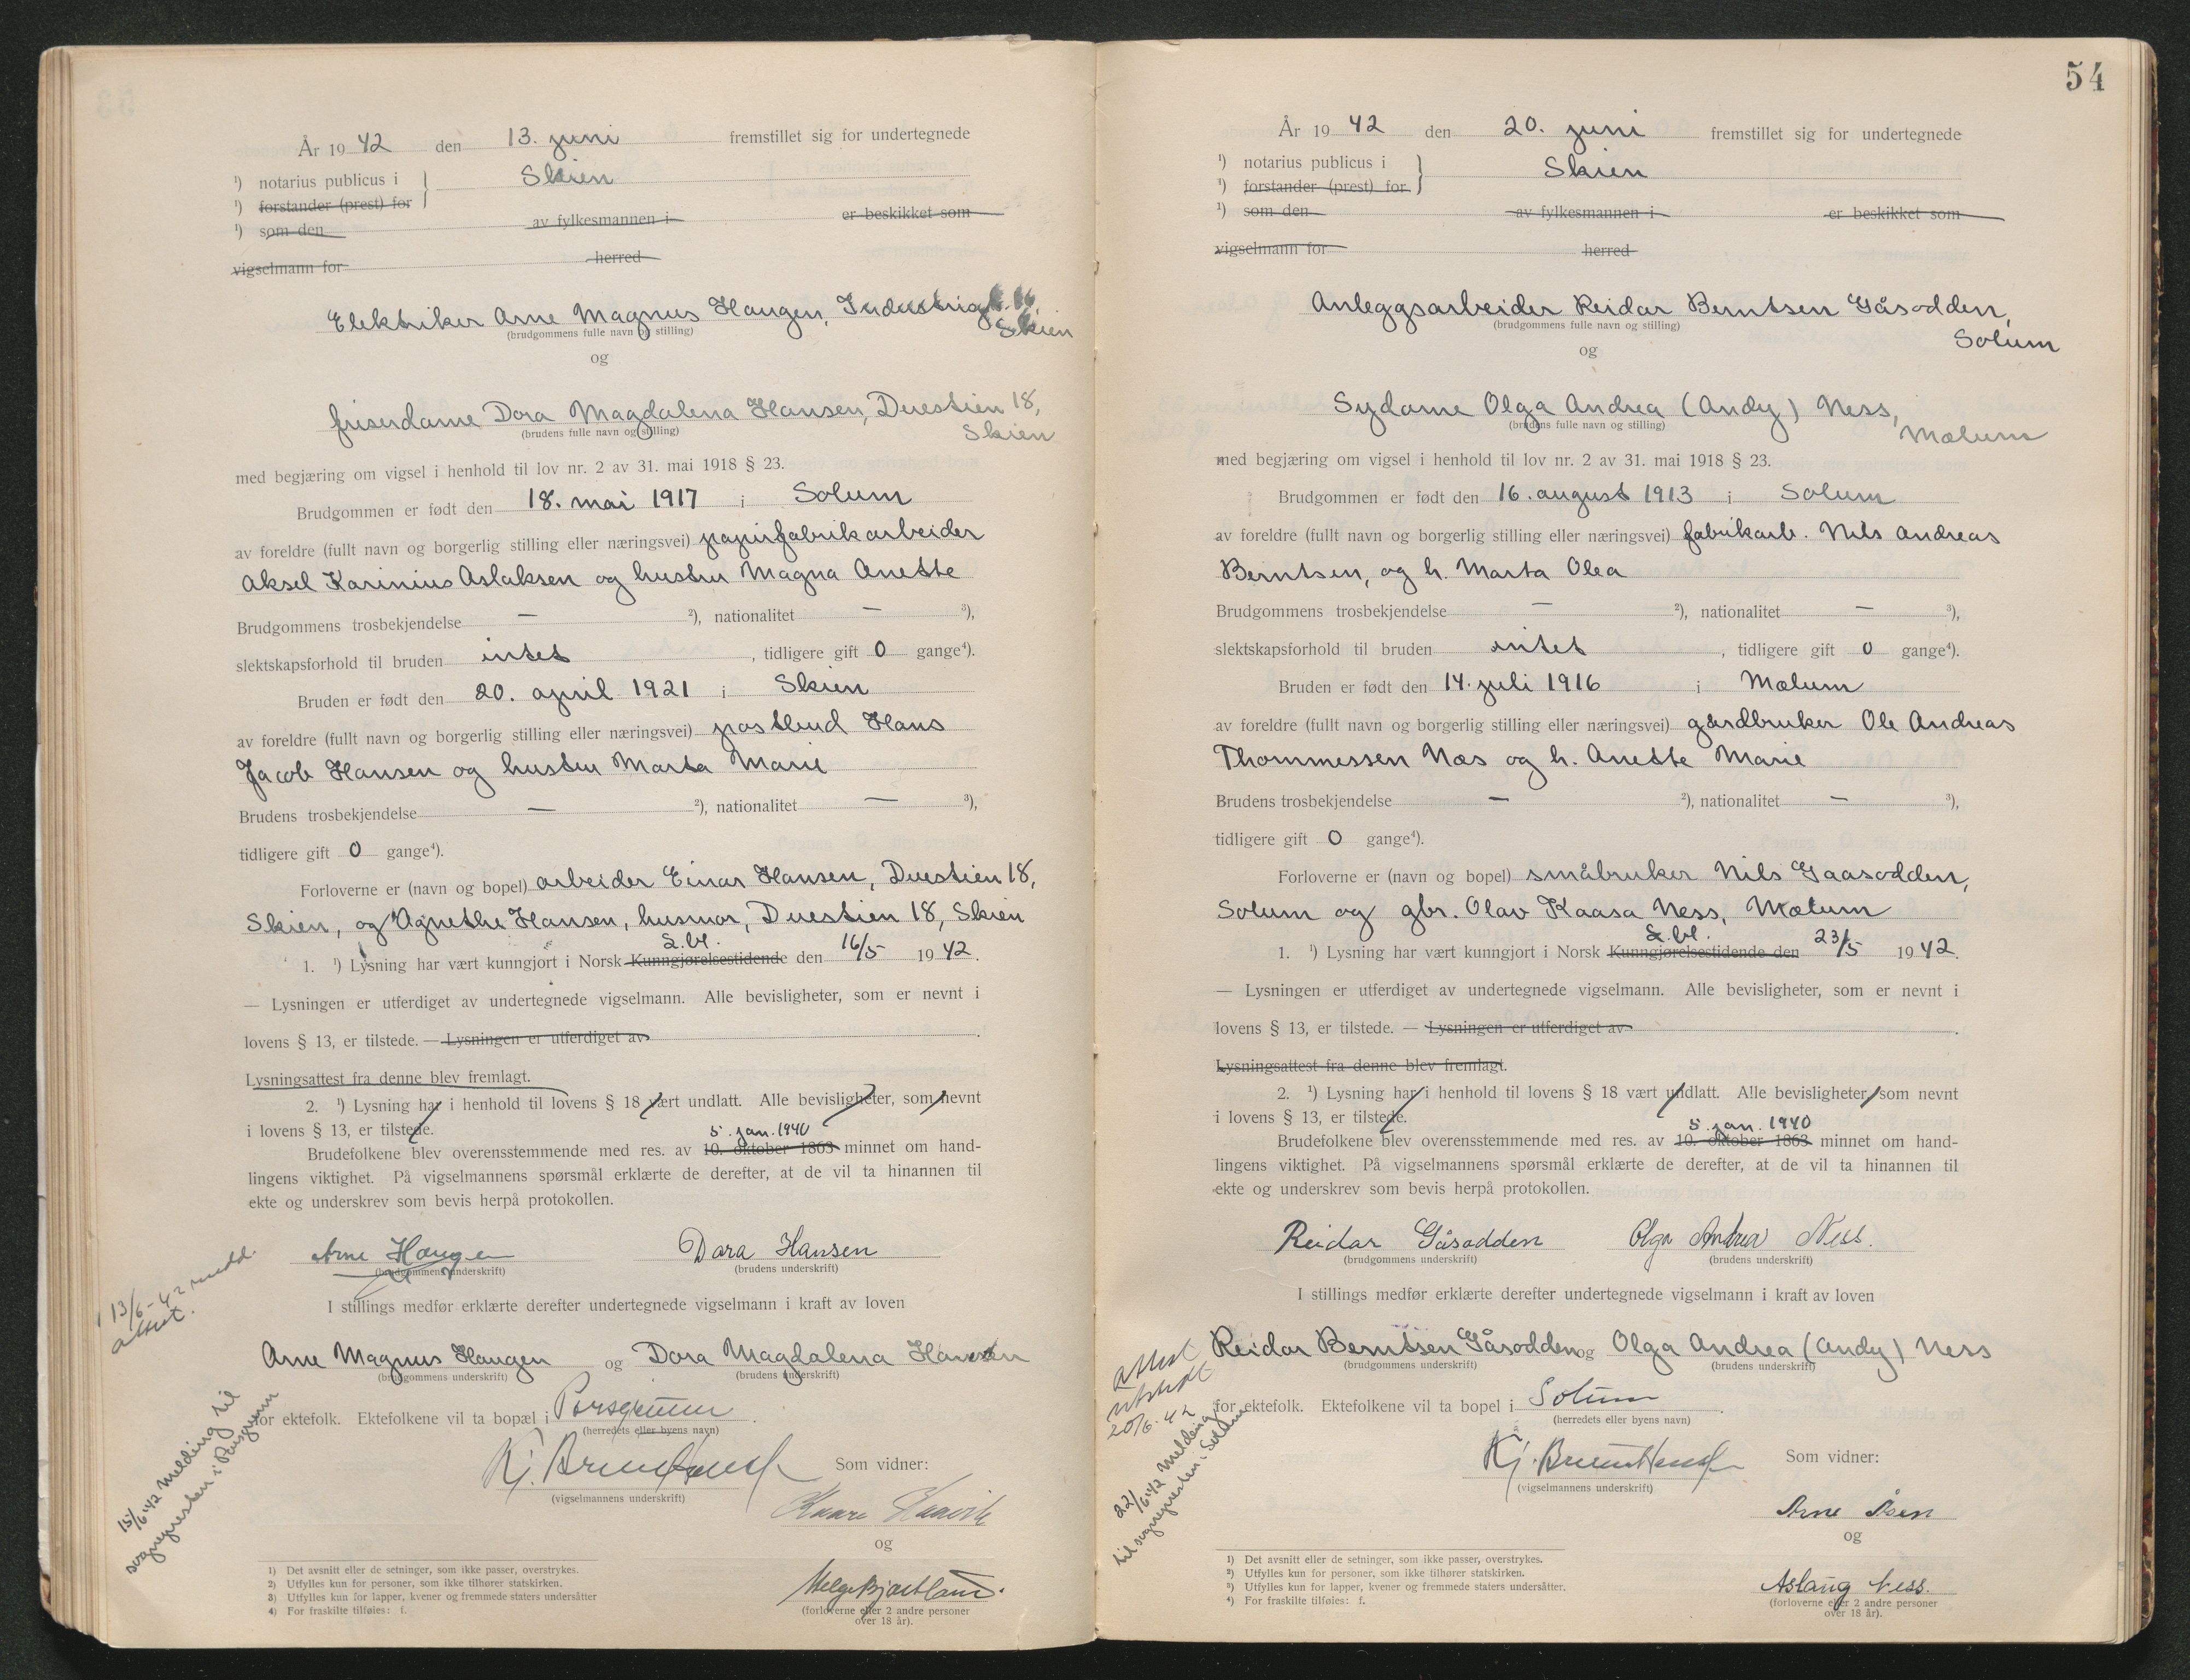 År 19 42 den 13. juni fremstillet sig for undertegnede
¹) notarius publicus i } Skien
¹) forstander (prest) for
¹) som den av fylkesmannen i er beskikket som
vigselmann for herred
Elektriker Arne Magnus Haugen, Industrigt. 16,
Skien
(brudgommens fulle navn og stilling)
og
friserdame Dora Magdalena Hansen, Duestien 18,
Skien
(brudens fulle navn og stilling)
med begjæring om vigsel i henhold til lov nr. 2 av 31. mai 1918 § 23.
Brudgommen er født den 18. mai 1917 i Solum
av foreldre (fullt navn og borgerlig stilling eller næringsvei) papirfabrikarbeider
Aksel Karinius Aslaksen og hustru Magna Anette
Brudgommens trosbekjendelse — ²), nationalitet — ³),
slektskapsforhold til bruden intet , tidligere gift 0 gange⁴).
Bruden er født den 20. april 1921 i Skien
av foreldre (fullt navn og borgerlig stilling eller næringsvei) postbud Hans
Jacob Hansen og hustru Marta Marie
Brudens trosbekjendelse — ²), nationalitet — ³),
tidligere gift 0 gange⁴).
Forloverne er (navn og bopel) arbeider Einar Hansen, Duestien 18,
Skien, og Agnethe Hansen, husmor, Duestien 18, Skien
S.bl.
1. ¹) Lysning har vært kunngjort i Norsk Kunngjørelsestidende den 16/5 19 42.
— Lysningen er utferdiget av undertegnede vigselmann. Alle bevisligheter, som er nevnt i
lovens § 13, er tilstede. — Lysningen er utferdiget av .
Lysningsattest fra denne blev fremlagt.
2. ¹) Lysning har i henhold til lovens § 18 vært undlatt. Alle bevisligheter, som nevnt
i lovens § 13, er tilstede.
5. jan. 1940
Brudefolkene blev overensstemmende med res. av 10. oktober 1863 minnet om hand-
lingens viktighet. På vigselmannens spørsmål erklærte de derefter, at de vil ta hinannen til
ekte og underskrev som bevis herpå protokollen.
Arne Haugen Dora Hansen
(brudgommens underskrift) (brudens underskrift)
13/6-42 medd.
attest.
I stillings medfør erklærte derefter undertegnede vigselmann i kraft av loven
Arne Magnus Haugen og Dora Magdalena Hansen
(brudgommens underskrift) (brudens underskrift)
for ektefolk. Ektefolkene vil ta bopæl i Porsgrunn .
(herredets eller byens navn)
15/6-42 Melding til
sognepresten i Porsgrunn
Som vidner:
(vigselmannens underskrift)
Kaare Haavik
og
(forloverne eller 2 andre personer
over 18 år).
1) Det avsnitt eller de setninger, som ikke passer, overstrykes.
2) Utfylles kun for personer, som ikke tilhører statskirken.
3) Utfylles kun for lapper, kvener og fremmede staters undersåtter
4) For fraskilte tilføies: f.
54
År 19 42 den 20. juni fremstillet sig for undertegnede
¹) notarius publicus i } Skien
¹) forstander (prest) for
¹) som den av fylkesmannen i er beskikket som
vigselmann for herred
Anleggsarbeider Reidar Berntsen Gåsodden,
Solum
(brudgommens fulle navn og stilling)
og
Sydame Olga Andrea (Andy) Ness,
Mælum
(brudens fulle navn og stilling)
med begjæring om vigsel i henhold til lov nr. 2 av 31. mai 1918 § 23.
Brudgommen er født den 16. august 1913 i Solum
av foreldre (fullt navn og borgerlig stilling eller næringsvei) fabrikarb. Nils Andreas
Berntsen, og h. Marta Olea
Brudgommens trosbekjendelse — ²), nationalitet — ³),
slektskapsforhold til bruden intet , tidligere gift 0 gange⁴).
Bruden er født den 14. juli 1916 i Mælum
av foreldre (fullt navn og borgerlig stilling eller næringsvei) gårdbruker Ole Andreas
Thommessen Næs og h. Anette Marie
Brudens trosbekjendelse — ²), nationalitet — ³),
tidligere gift 0 gange⁴).
Forloverne er (navn og bopel) småbruker Nils Gaasodden,
Solum og gbr. Olav Kaasa Ness, Mælum
S.bl.
1. ¹) Lysning har vært kunngjort i Norsk Kunngjørelsestidende den 23/5 19 42.
— Lysningen er utferdiget av undertegnede vigselmann. Alle bevisligheter, som er nevnt i
lovens § 13, er tilstede. — Lysningen er utferdiget av .
Lysningsattest fra denne blev fremlagt.
2. ¹) Lysning har i henhold til lovens § 18 vært undlatt. Alle bevisligheter, som nevnt
i lovens § 13, er tilstede.
5. jan. 1940
Brudefolkene blev overensstemmende med res. av 10. oktober 1863 minnet om hand-
lingens viktighet. På vigselmannens spørsmål erklærte de derefter, at de vil ta hinannen til
ekte og underskrev som bevis herpå protokollen.
Reidar Gåsodden Olga Andrea Ness.
(brudgommens underskrift) (brudens underskrift)
I stillings medfør erklærte derefter undertegnede vigselmann i kraft av loven
Reidar Berntsen Gåsodden og Olga Andrea (Andy) Ness
(brudgommens underskrift) (brudens underskrift)
attest
utstedt
20/6-42
for ektefolk. Ektefolkene vil ta bopel i Solum .
(herredets eller byens navn)
22/6-42 Melding
til sognepresten i Solum
Som vidner:
(vigselmannens underskrift)
Arne Åsen
og
Aslaug Ness.
(forloverne eller 2 andre personer
over 18 år).
¹) Det avsnitt eller de setninger, som ikke passer, overstrykes.
²) Utfylles kun for personer, som ikke tilhører statskirken.
³) Utfylles kun for lapper, kvener og fremmede staters undersåtter.
⁴) For fraskilte tilføies: f.